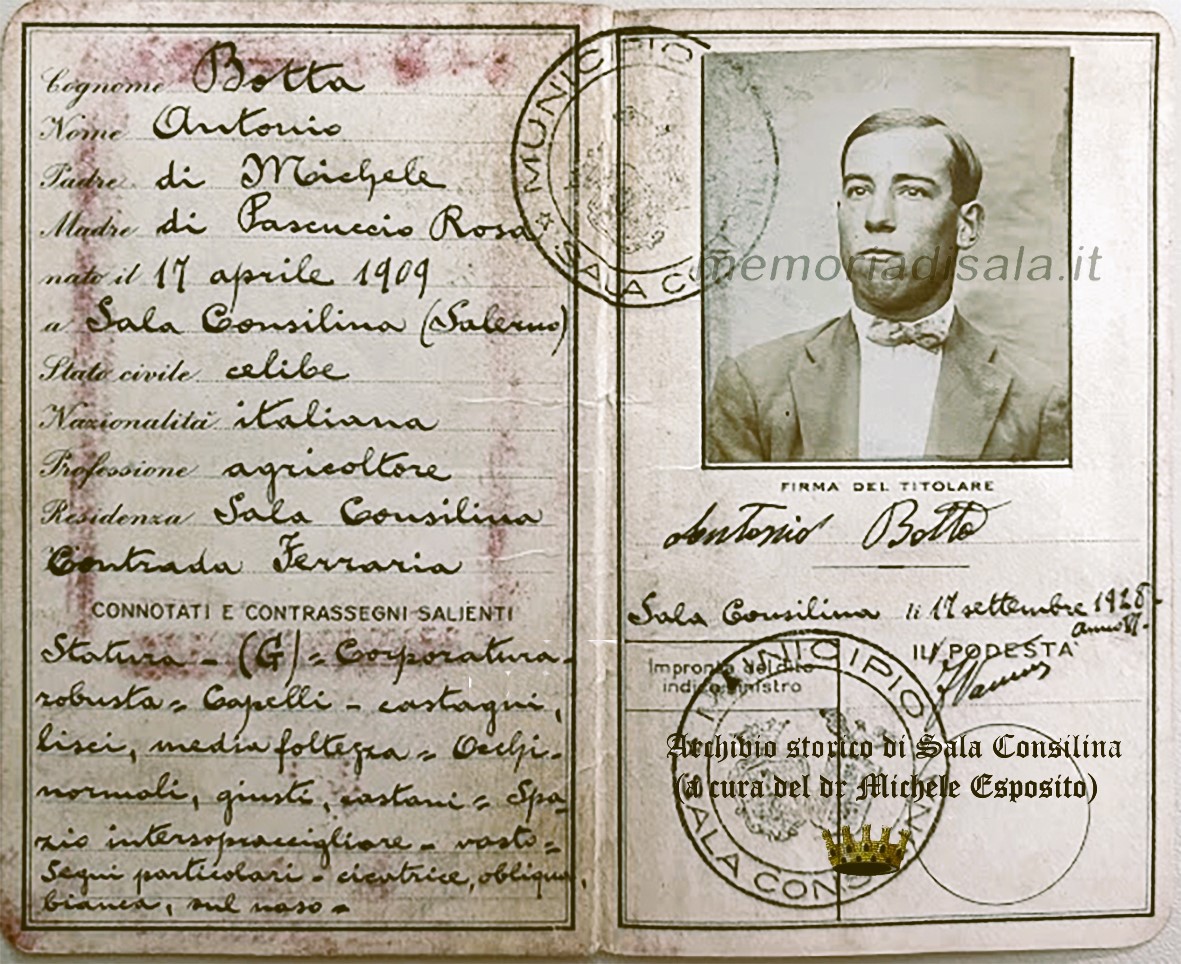 Cognome Botta
Nome Antonio
Padre di Michele
Madre di Pascuccio Rosa
nato il 17 aprile 1909
a Sala Consilina (Salerno)
Stato civile celibe
Nazionalità italiana
Professione agricoltore
Residenza Sala Consilina
Contrada Ferraria
CONNOTATI E CONTRASSEGNI SALIENTI
Statura - (G) = Corporatura
robusta = Capelli - castagni,
lisci, media foltezza = Occhi-
normali, giusti, castani = Spa-
zio intersopraccigliare - vasto =
Segni particolari - cicatrice, obliqua,
bianca, sul naso =
MUNICIPIO
SALA CO
memoriadisala.it
FIRMA DEL TITOLARE
Antonio Botta
Sala Consilina li 17 settembre 1928-
Anno VI-
IL PODESTA'
Impronta del dito
indice sinistro
MUNICIPIO
SALA CONSILINA
Archivio storico di Sala Consilina
(a cura del dr Michele Esposito)